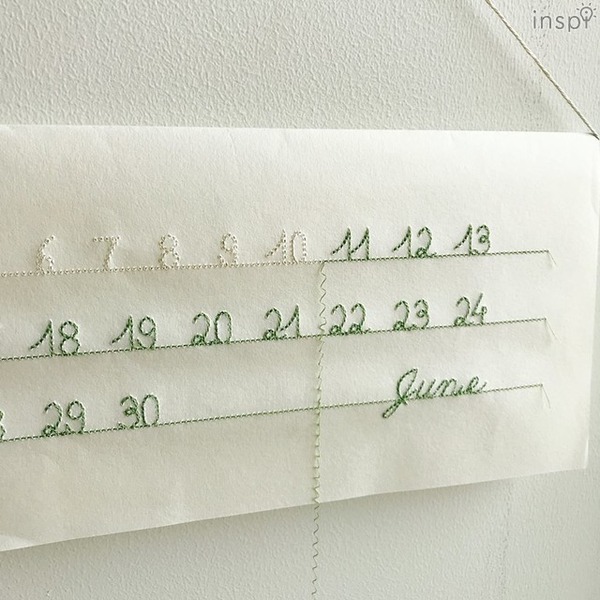 inspi
6 7 8 9 10 11 12 13
18 19 20 21 22 23 24
29 30 June